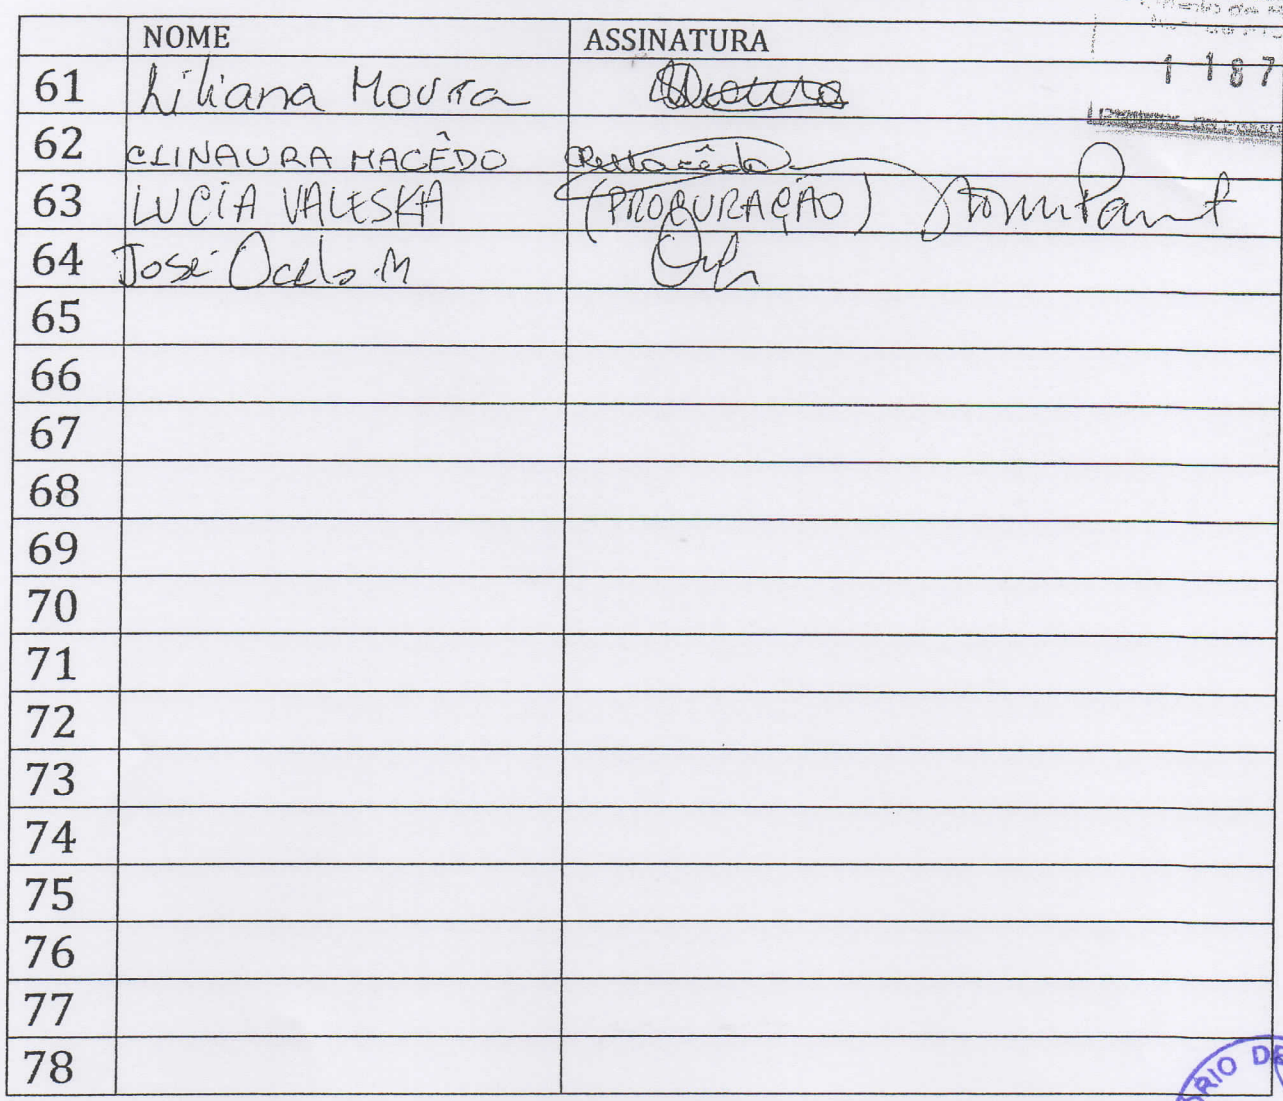 NOME ASSINATURA
1 187
61 Liliana Moura
62 CLINAURA MACÊDO
63 LUCIA VALESKA (PROCURAÇÃO)
64 José M
65
66
67
68
69
70
71
72
73
74
75
76
77
78